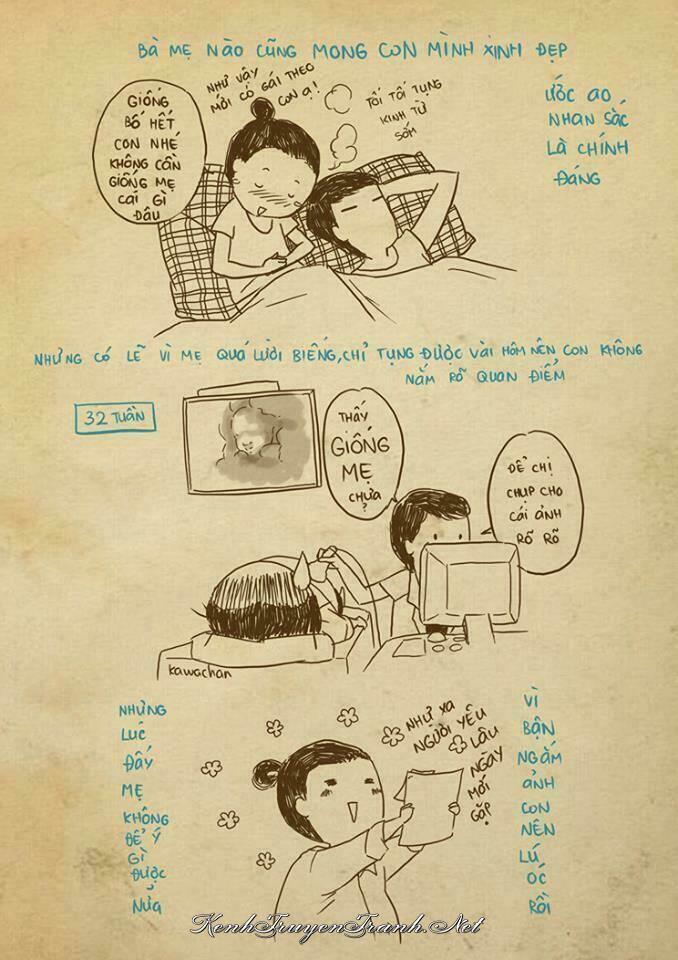 BÀ MẸ NÀO CŨNG MONG CON MÌNH XINH ĐẸP
GIỐNG
BỐ HẾT
CON NHÉ
KHÔNG CẦN
GIỐNG MẸ
CÁI GÌ
ĐÂU
NHƯ VẬY
MỚI CÓ GÁI THEO
CON Ạ!
TỐI TỐI TỤNG
KINH TỪ
SỚM
ƯỚC AO
NHAN SẮC
LÀ CHÍNH
ĐÁNG
NHƯNG CÓ LẼ VÌ MẸ QUÁ LƯỜI BIẾNG, CHỈ TỤNG ĐƯỢC VÀI HÔM NÊN CON KHÔNG
NẮM RÕ QUAN ĐIỂM
32 TUẦN
THẤY
GIỐNG
MẸ
CHƯA
ĐỂ CHỊ
CHỤP CHO
CÁI ẢNH
RÕ RÕ
kawachan
NHƯNG
LÚC
ĐẤY
MẸ
KHÔNG
ĐỂ Ý
GÌ
ĐƯỢC
NỮA
NHƯ XA
NGƯỜI YÊU
LÂU
NGÀY
MỚI
GẶP
VÌ
BẬN
NGẮM
ẢNH
CON
NÊN
LÚ
ÓC
RỒI
KenhTruyenTranh.Net